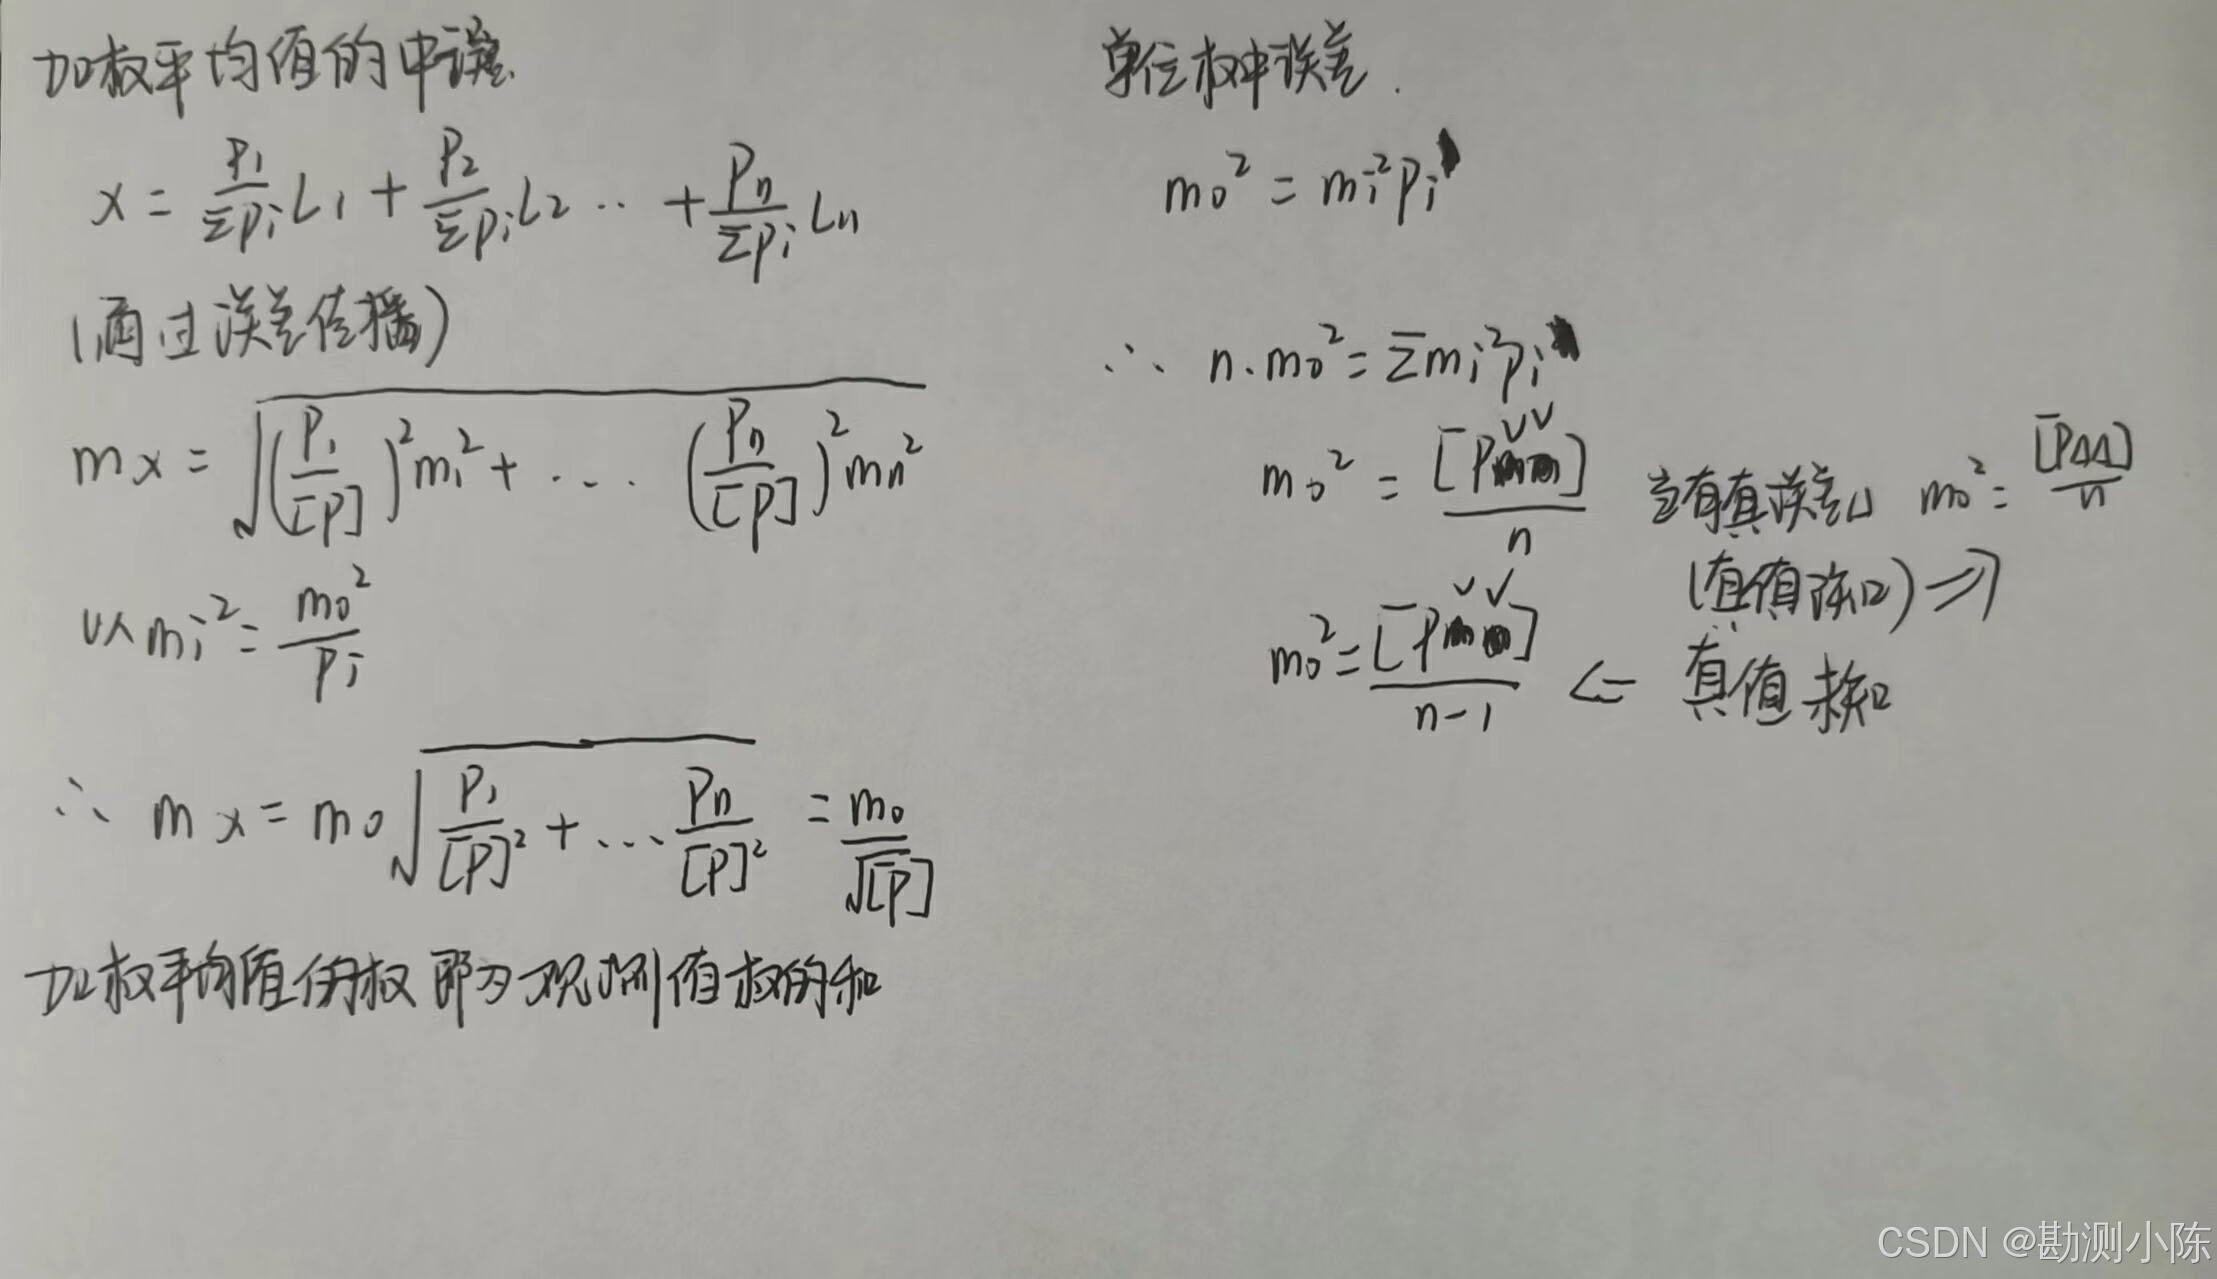 加权平均值的中误差
x = P₁/Σpᵢ L₁ + P₂/Σpᵢ L₂ ·· + Pn/Σpᵢ Ln
(通过误差传播)
mx = √((P₁/[P])²m₁² + ... (Pn/[P])²mn²)
以 mᵢ² = m₀²/Pᵢ
∴ mx = m₀√(P₁/[P]² + ... Pn/[P]²) = m₀/√[P]
加权平均值的权即为观测值权的和
单位权中误差.
m₀² = mᵢ²pᵢ
∴ n·m₀² = Σmᵢ²pᵢ
m₀² = [Pvv]/n 当有真误差△ m₀² = [P△△]/n
(真值已知) ⇒
m₀² = [Pvv]/n-1 ⇐ 真值未知
CSDN @勘测小陈